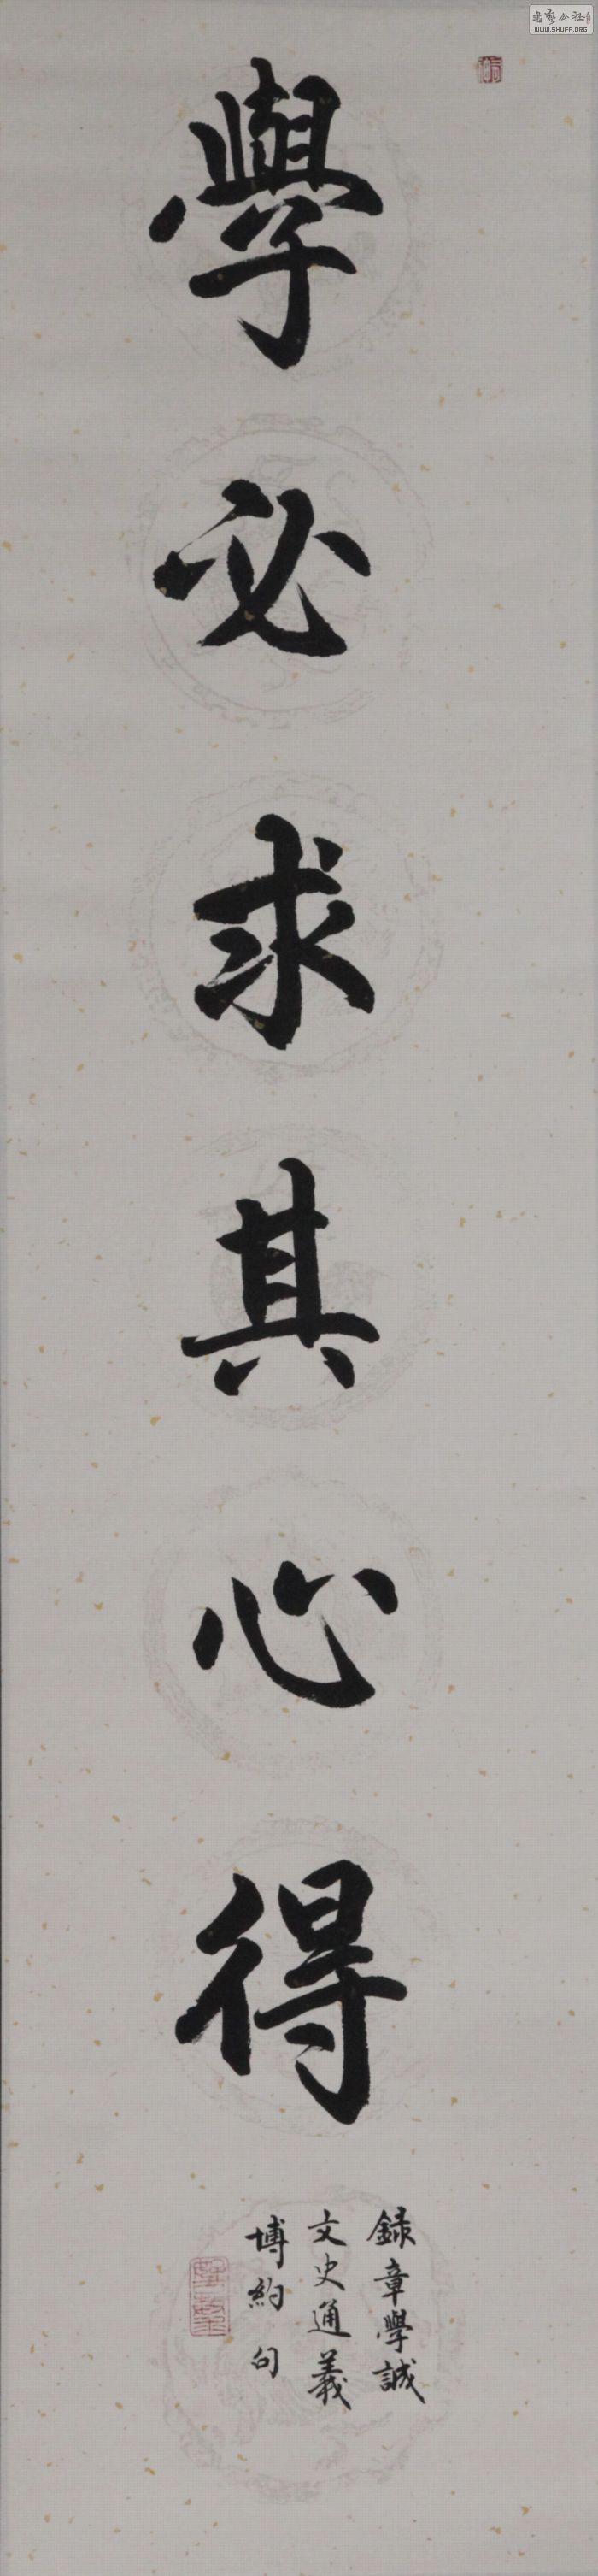 學必求其心得
錄章學誠
文史通義
博約句
WWW.SHUFA.ORG